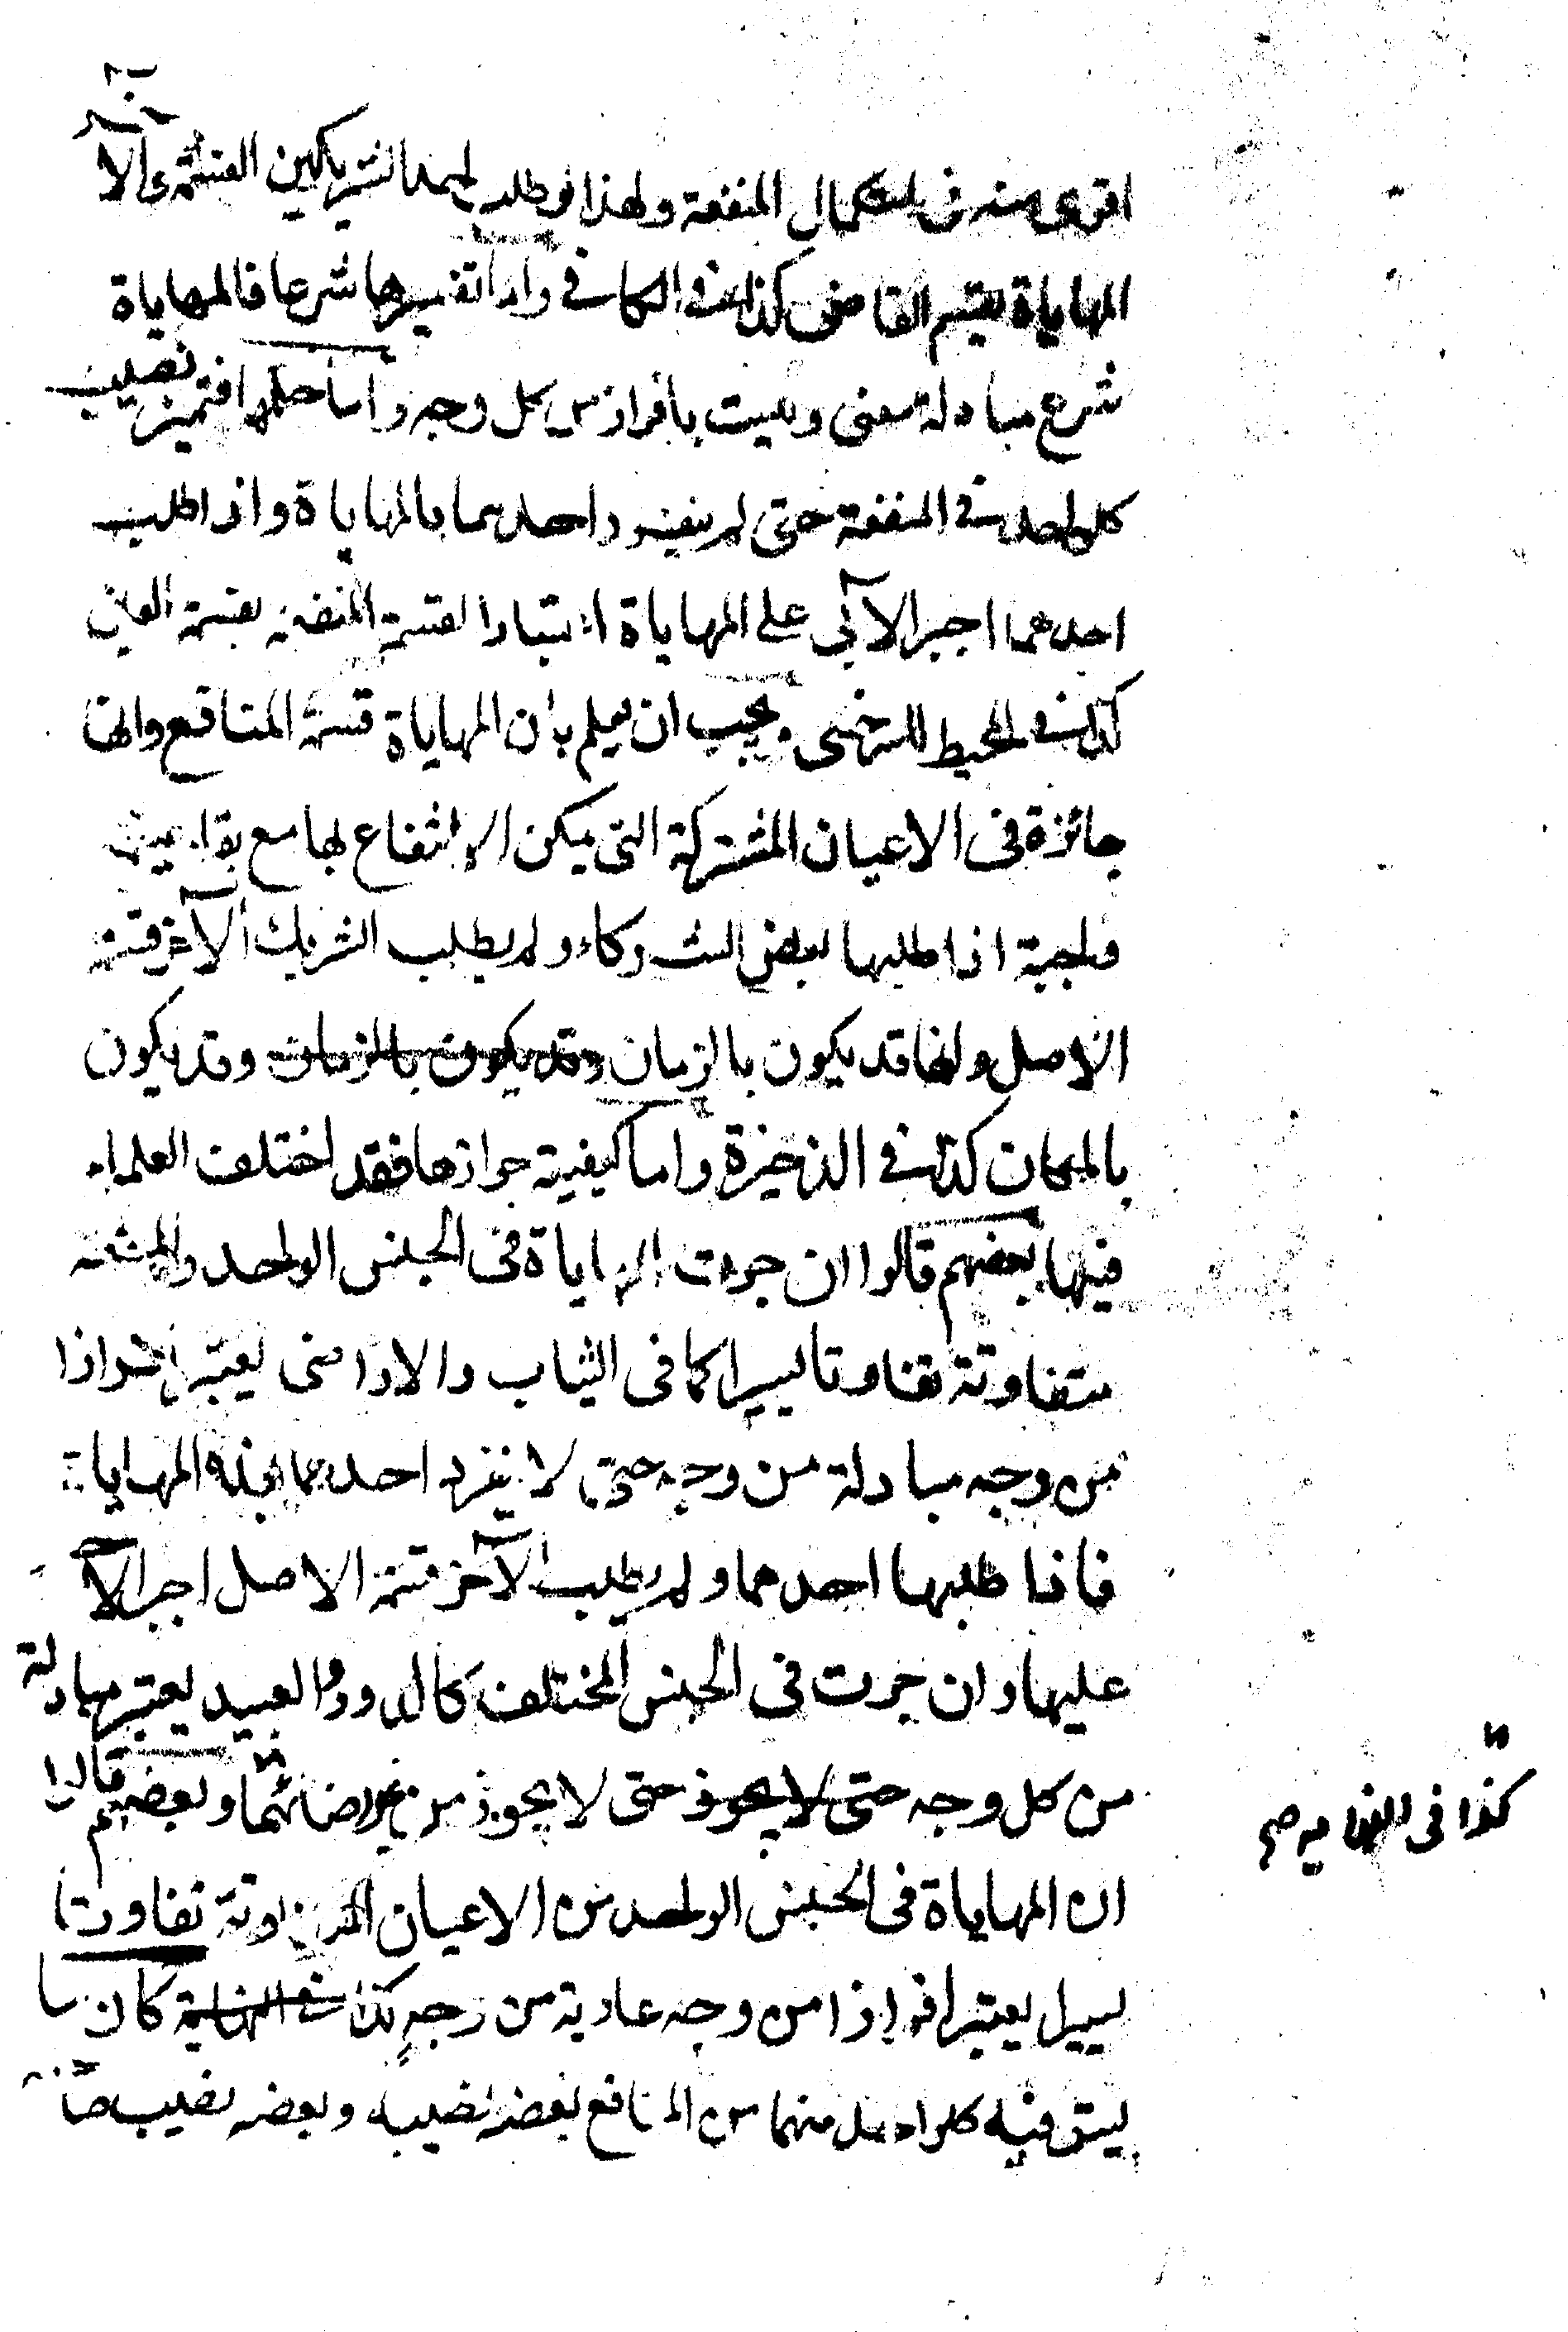 اقوى منه في استكمال المنفعة ولهذا لو طلب احد الشريكين القسمة والآخر
المهاياة يقسم القاضي كذا في الكافي واما تفسيرها شرعا فالمهاياة
شرع مبادلة معنى وليست بافراز من كل وجه واما حكمها فتميز نصيب
كل واحد في المنفعة حتى لم ينفرد احدهما بالمهاياة واذا طلب
احدهما اجبر الآبى على المهاياة اعتبارا لقسمة المنفعة بقسمة العين
كذا في المحيط للسرخسى ويجب ان يعلم بان المهاياة قسمة المنافع وانها
جائزة فى الاعيان المشتركة التى يمكن الانتفاع بها مع بقاء عينها
واجبة اذا طلبها بعض الشركاء ولم يطلب الشريك الآخر قسمة
الاصل وانها قد يكون بالزمان وقد يكون بالزمان وقد يكون
بالمكان كذا في الذخيرة واما كيفية جوازها فقد اختلف العلماء
فيها بعضهم قالوا ان جرت المهاياة فى الجنس الواحد والمنفعة
متفاوتة تفاوتا يسيرا كما فى الثياب والاراضى يعتبر افرازا
من وجه مبادلة من وجه حتى لا ينفرد احدهما بهذه المهاياة
فاذا طلبها احدهما ولم يطلب الآخر قسمة الاصل اجبر الآخر
عليها وان جرت فى الجنس المختلف كالدور والعبيد يعتبر مبادلة
من كل وجه حتى لا يجوز حتى لا يجوز من غير رضائهما وبعضهم قالوا
كذا فى النهاية صح
ان المهاياة فى الجنس الواحد من الاعيان المتفاوتة تفاوتا
يسيرا يعتبر افرازا من وجه عارية من وجه كذا في النهاية كان ما
يستوفيه كل واحد منهما من المنافع بعضه نصيبه وبعضه نصيب صاحبه